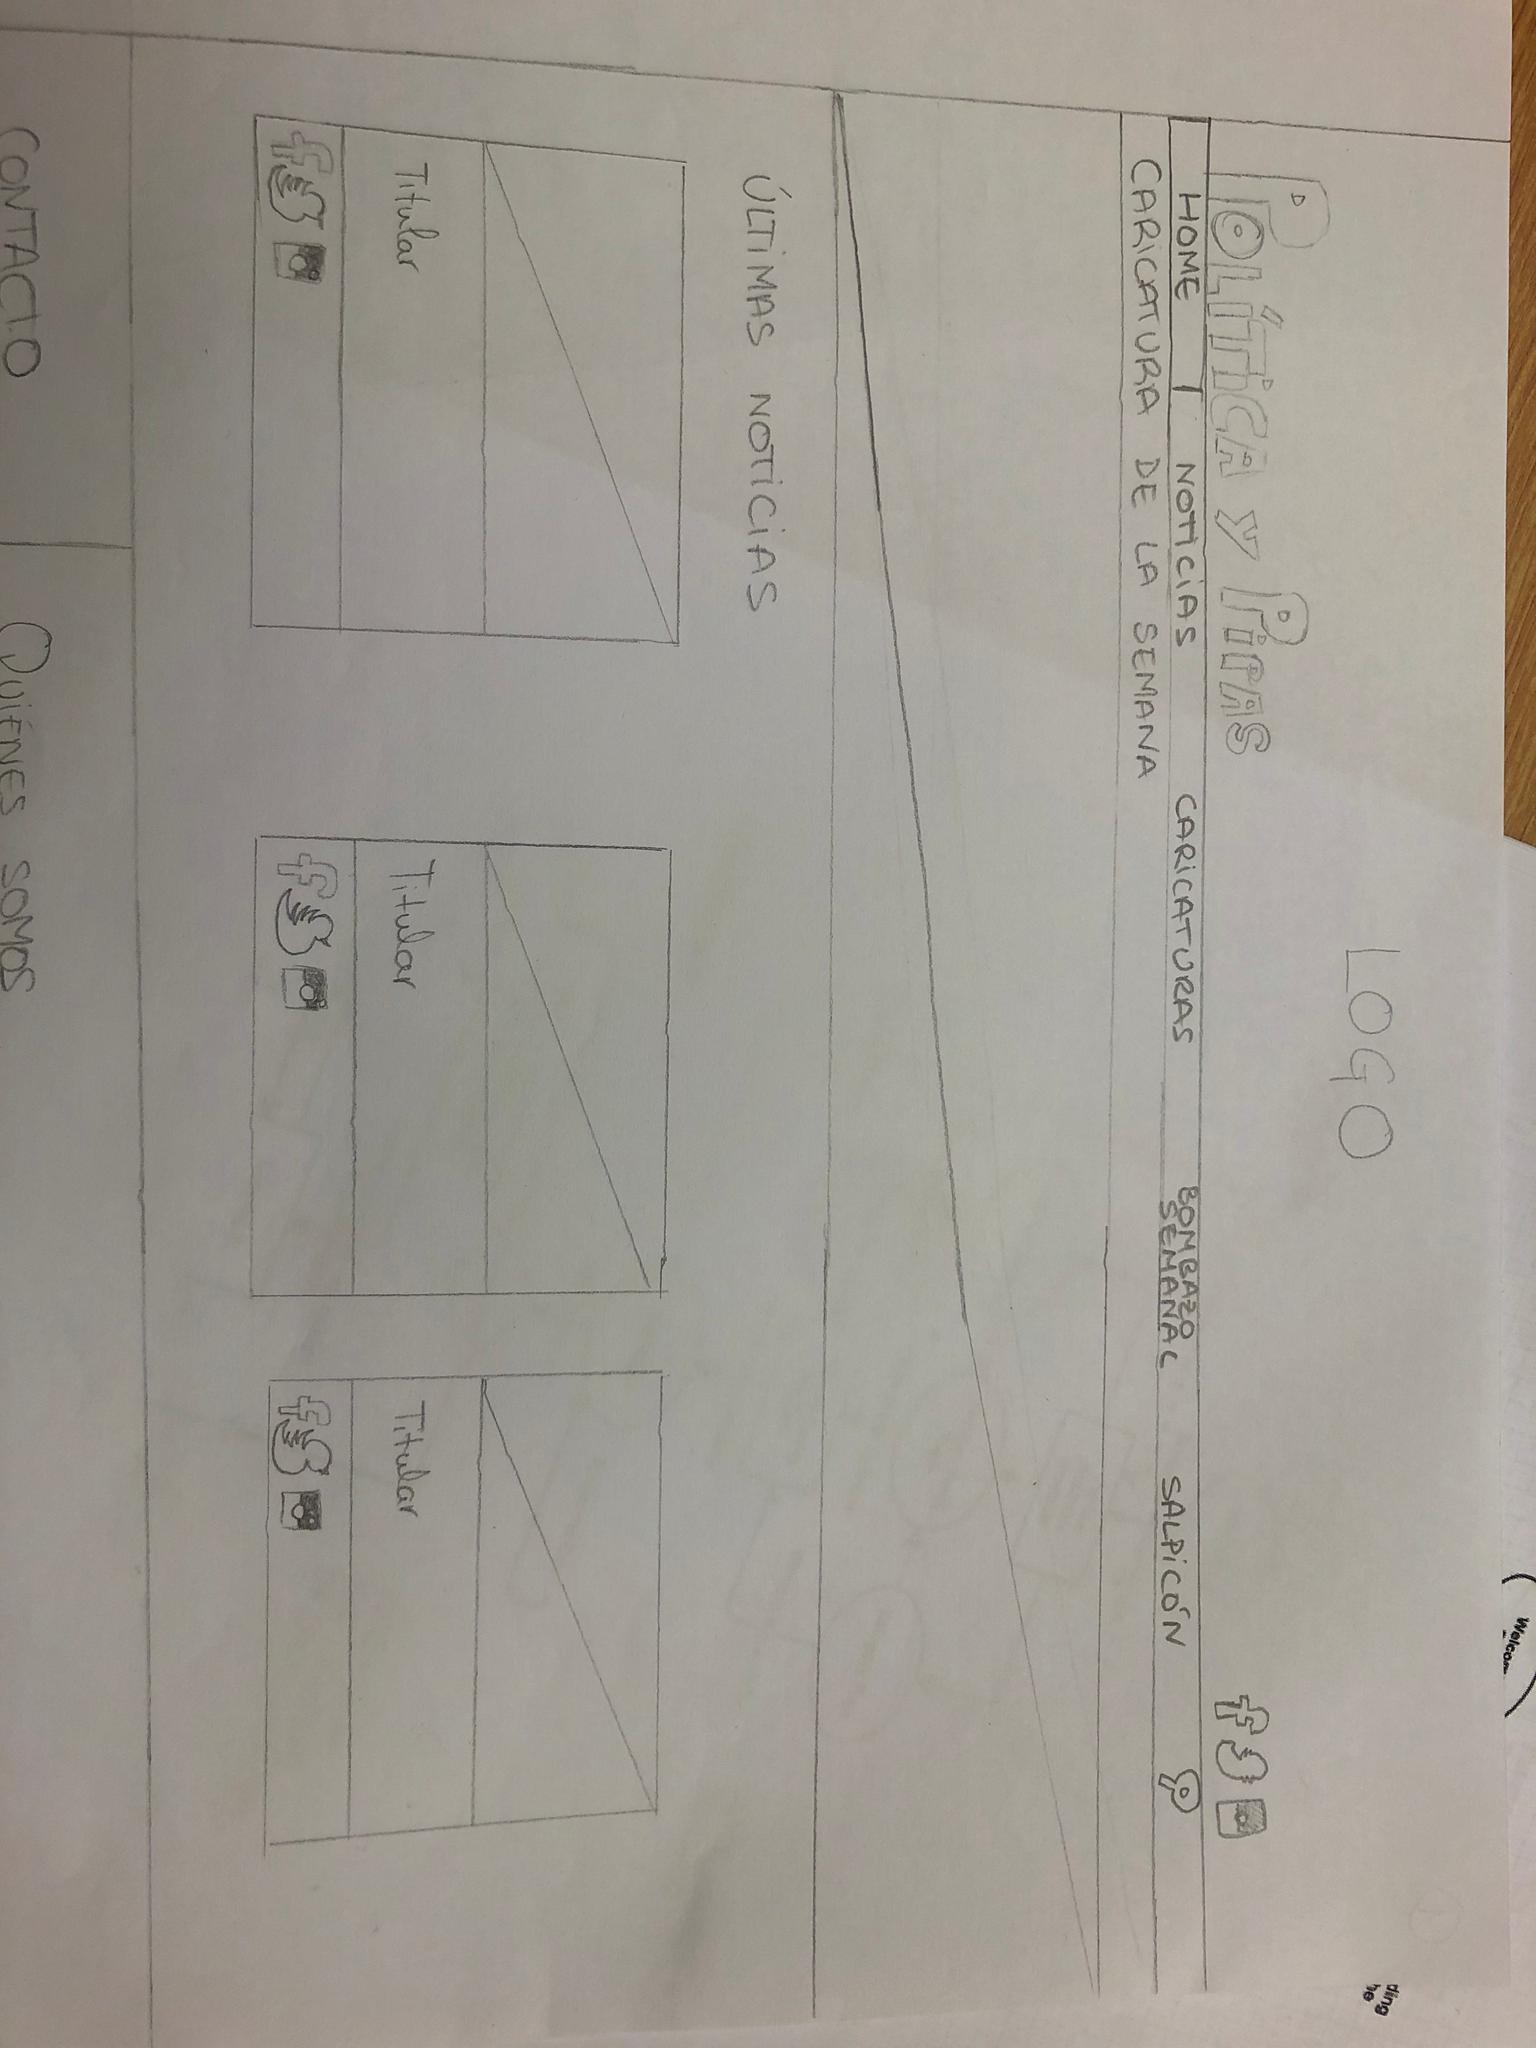 Welcom
ding
he
LOGO
POLÍTICA Y PIPAS
HOME NOTICIAS CARICATURAS BOMBAZO SEMANAL SALPICÓN
CARICATURA DE LA SEMANA
ÚLTIMAS NOTICIAS
Titular Titular Titular
CONTACTO QUIÉNES SOMOS